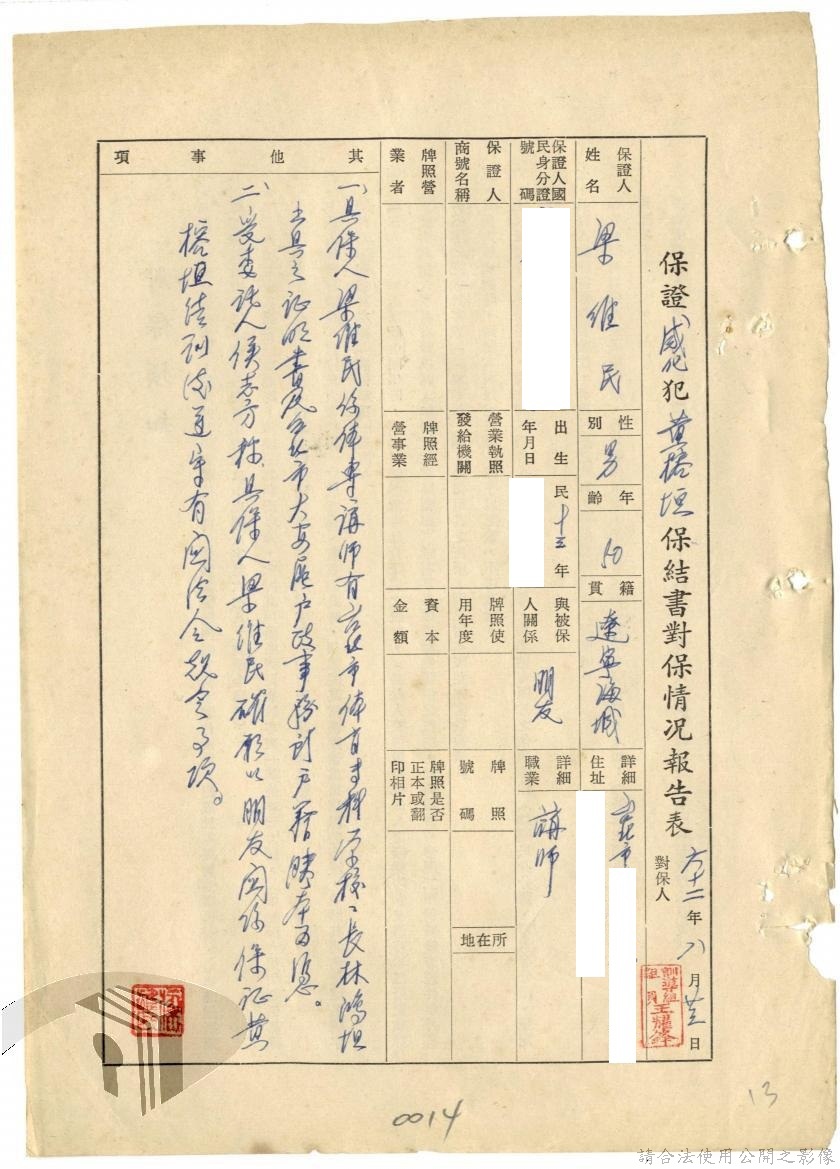 保證感化犯黃榕垣保結書對保情況報告表
六十二年八月廿三日
對保人
訓導組
組員
王耀鋒
保證人姓名
梁維民
性別
男
年齡
50
籍貫
遼寧海城
詳細住址
台北市
保證人國民身分證號碼
出生年月日
民十三年
與被保人關係
朋友
詳細職業
講師
保證人商號名稱
營業執照發給機關
牌照使用年度
牌照號碼
所在地
牌照營業者
牌照經營事業
資本金額
牌照是否正本或翻印相片
其他事項
一、具保人梁維民係体專講師有台北市体育專科學校校長林鴻坦
出具之証明書及台北市大安區戶政事務所戶籍謄本可憑。
二、受委託人侯志方称具保人梁維民確願以朋友関係保証黃
榕垣結訓後遵守有関法令規定事項。
0014
13
請合法使用公開之影像